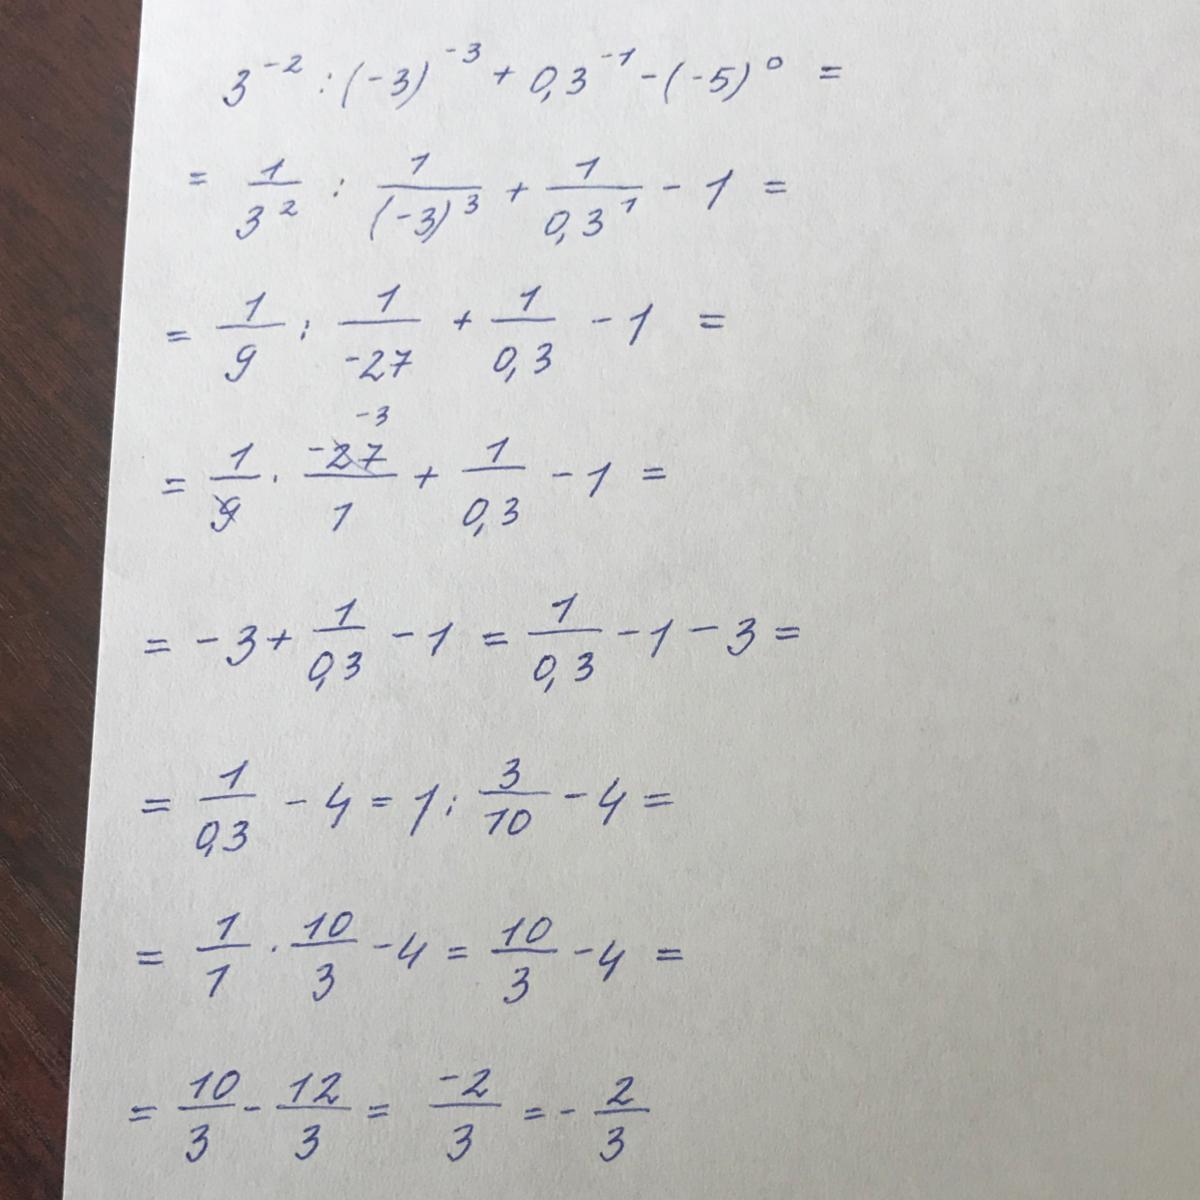 3⁻² : (-3)⁻³ + 0,3⁻¹ - (-5)⁰ =
= 1/3² : 1/(-3)³ + 1/0,3¹ - 1 =
= 1/9 : 1/-27 + 1/0,3 - 1 =
-3
= 1/9 · -27/1 + 1/0,3 - 1 =
= - 3 + 1/0,3 - 1 = 1/0,3 - 1 - 3 =
= 1/0,3 - 4 = 1 : 3/10 - 4 =
= 1/1 · 10/3 - 4 = 10/3 - 4 =
= 10/3 - 12/3 = -2/3 = - 2/3